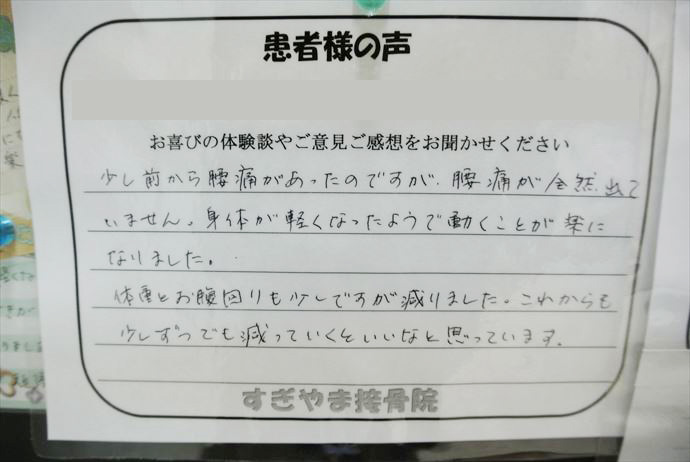 患者様の声
お喜びの体験談やご意見ご感想をお聞かせください
少し前から腰痛があったのですが、腰痛が全然出て
いません。身体が軽くなったようで動くことが楽に
なりました。
体重とお腹回りも少しですが減りました。これからも
少しずつでも減っていくといいなと思っています。
すぎやま接骨院